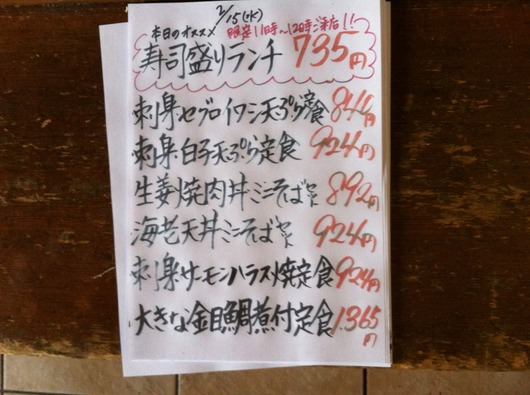 2/15(水)
本日のオススメ 限定11時〜12時ご来店!!
寿司盛りランチ 735円
刺身・セグロイワシ天ぷら定食 844円
刺身・白子天ぷら定食 924円
生姜焼肉丼ミニそばセット 892円
海老天丼ミニそばセット 924円
刺身・サーモンハラス焼定食 924円
大きな金目鯛煮付定食 1.365円